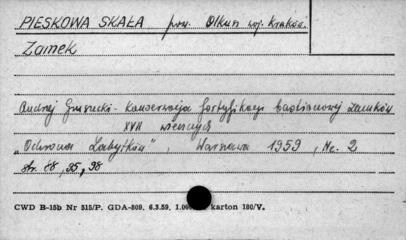 PIESKOWA SKAŁA pow. Olkusz woj. Kraków.
Zamek
Andrzej Gruszecki - Konserwacja fortyfikacji bastionowej zamków
XVII wiecznych
"Ochrona Zabytków", Warszawa 1959, Nr. 2
str. 88, 95, 98
CWD B-15b Nr 515/P. GDA-809. 6.3.59. karton 180/V.